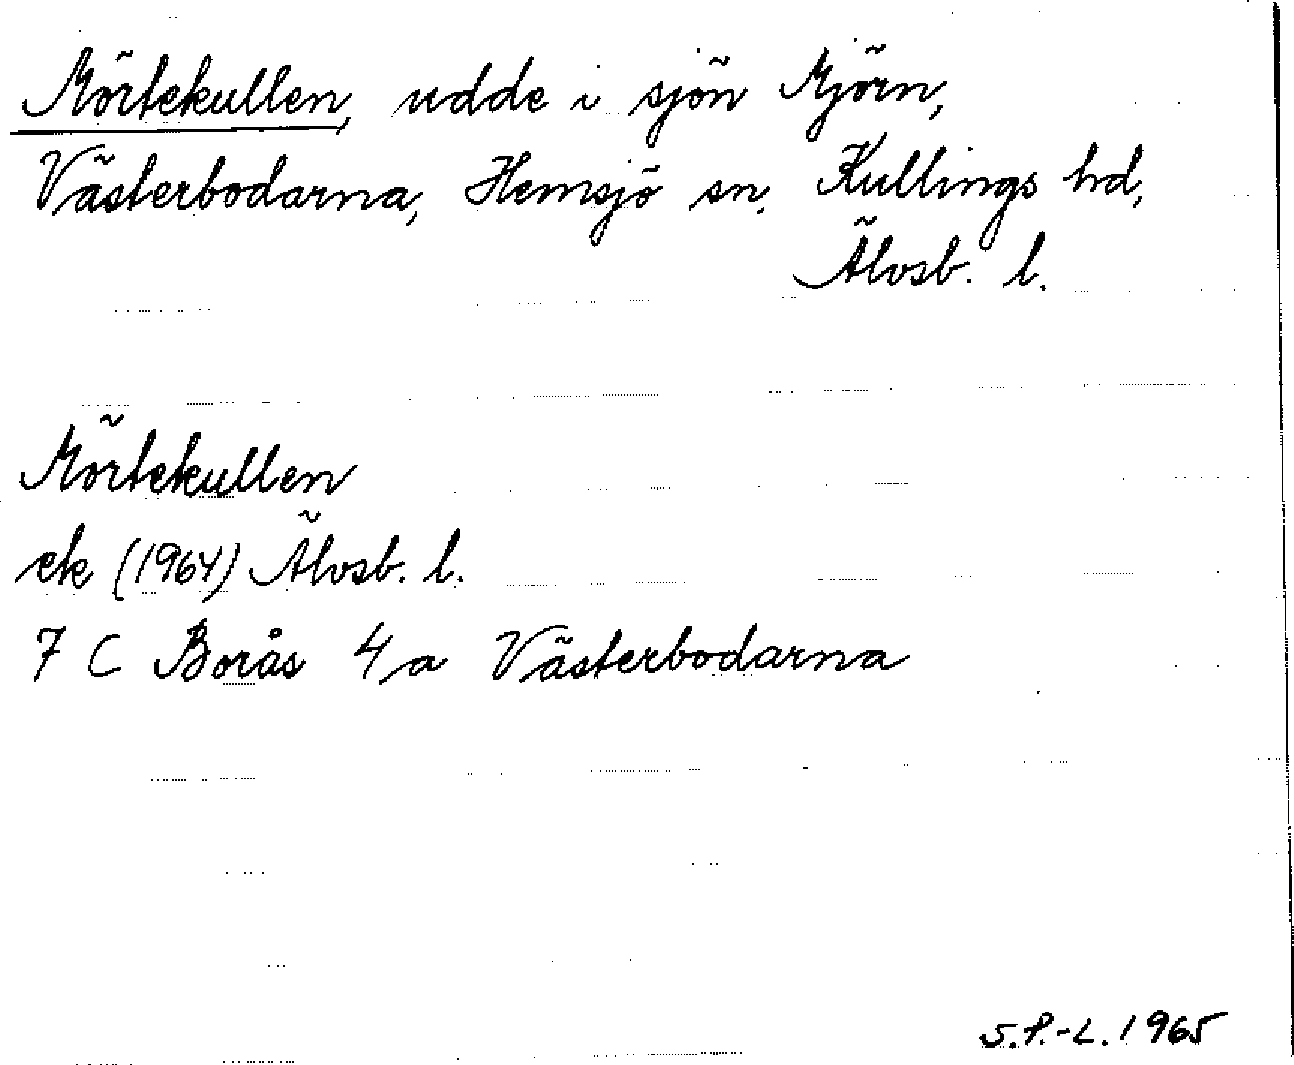 Mörtekullen, udde i sjön Mjörn,
Västerbodarna, Hemsjö sn, Kullings hd,
Älvsb. l.
Mörtekullen
ek (1964) Älvsb. l.
7 C Borås 4 a Västerbodarna
S.P.-L. 1965